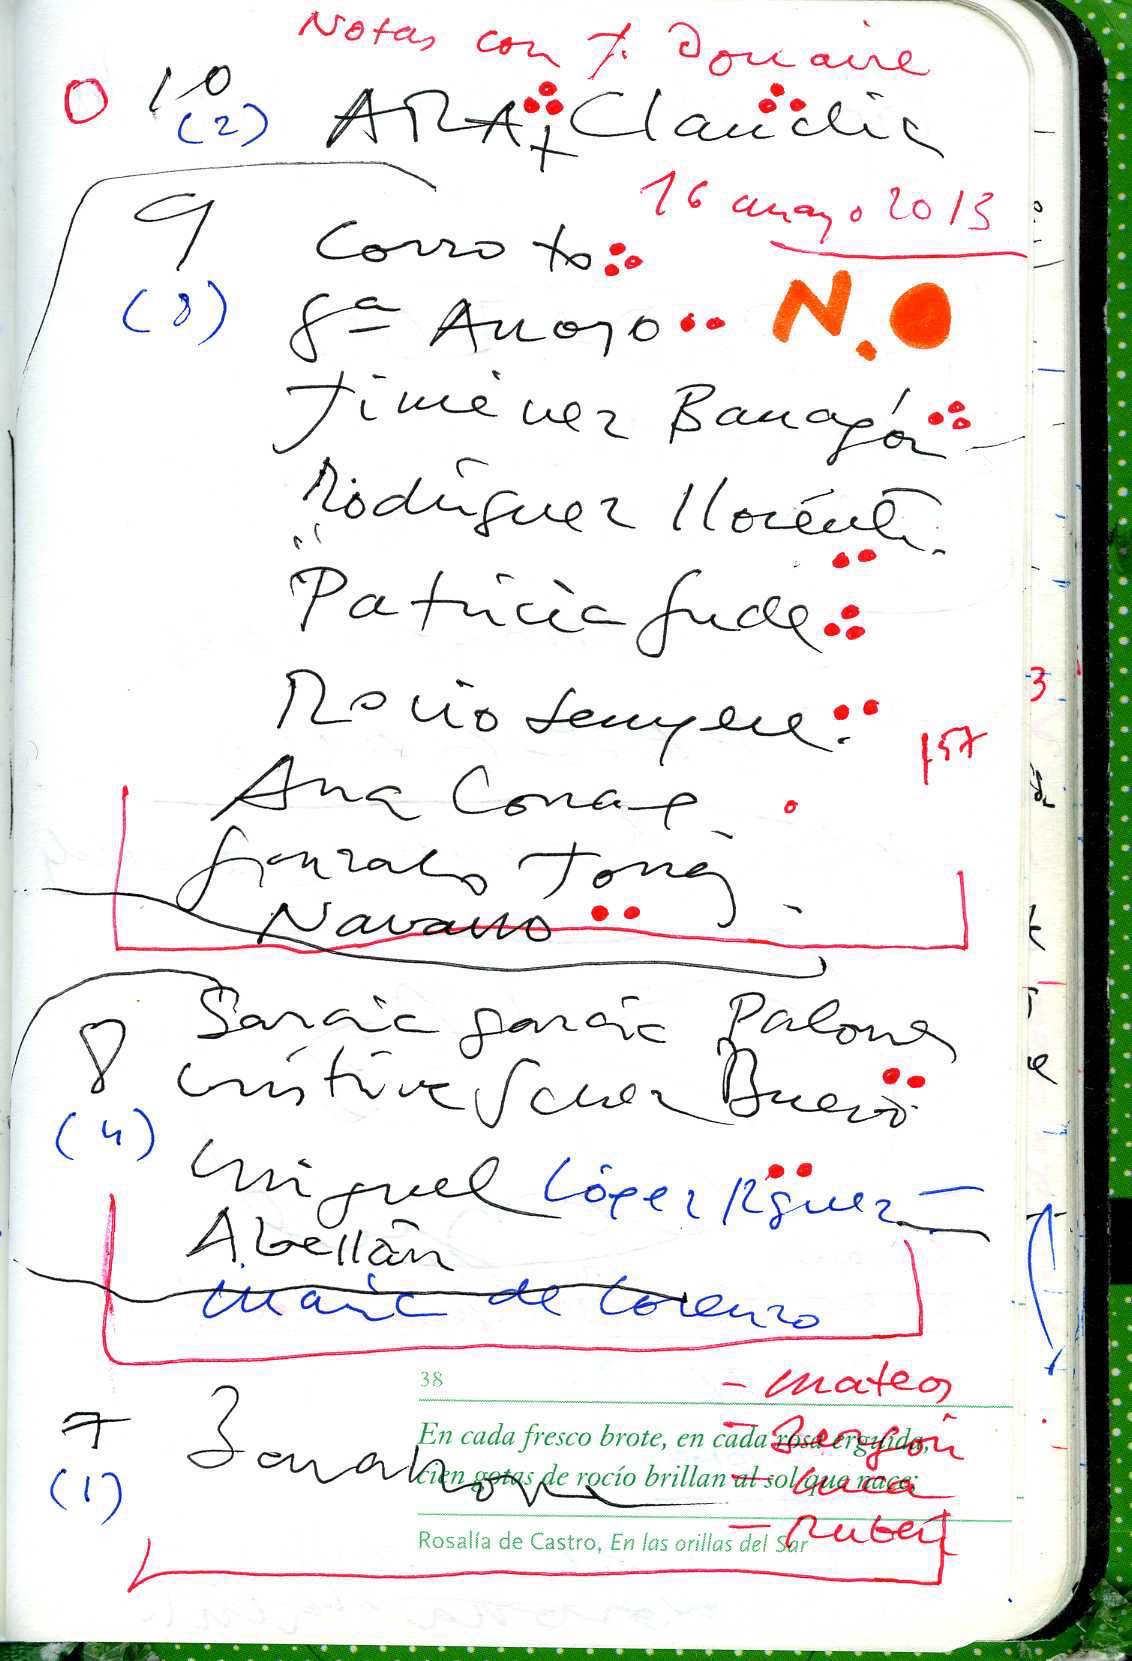 Notas con J. Donaire
O 10
(2) ARA + Claudia
16 mayo 2013
9 Corroto
(8) Gª Arroyo N.O
Jiménez Barragán
Rodríguez Llorente
Patricia Gude
Rocío Sempere
157
Ana Conae
Gonzalo Torres
Navarro
8 García García Paloma
Cristina Sanez Bueno
(4)
Miguel López Rguez
Abellán
María de Lorenzo
38
- Mateos
7
En cada fresco brote, en cada rosa erguida,
cien gotas de rocío brillan al sol que nace;
(1)
- Luca
- Rubén
Rosalía de Castro, En las orillas del Sar